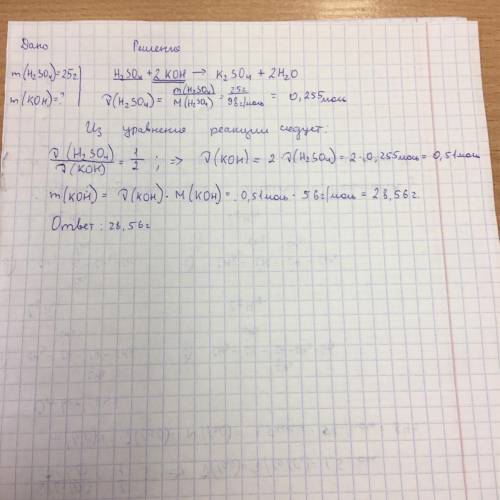 Дано Решение
m(H₂SO₄)=25г H₂SO₄ + 2KOH → K₂SO₄ + 2H₂O
m(KOH)=? ν(H₂SO₄) = m(H₂SO₄)/M(H₂SO₄) = 25г/98г/моль = 0,255моль
Из уравнения реакции следует:
ν(H₂SO₄)/ν(KOH) = 1/2 ; => ν(KOH) = 2·ν(H₂SO₄) = 2·0,255моль = 0,51моль
m(KOH) = ν(KOH)·M(KOH) = 0,51моль · 56г/моль = 28,56г.
Ответ: 28,56г